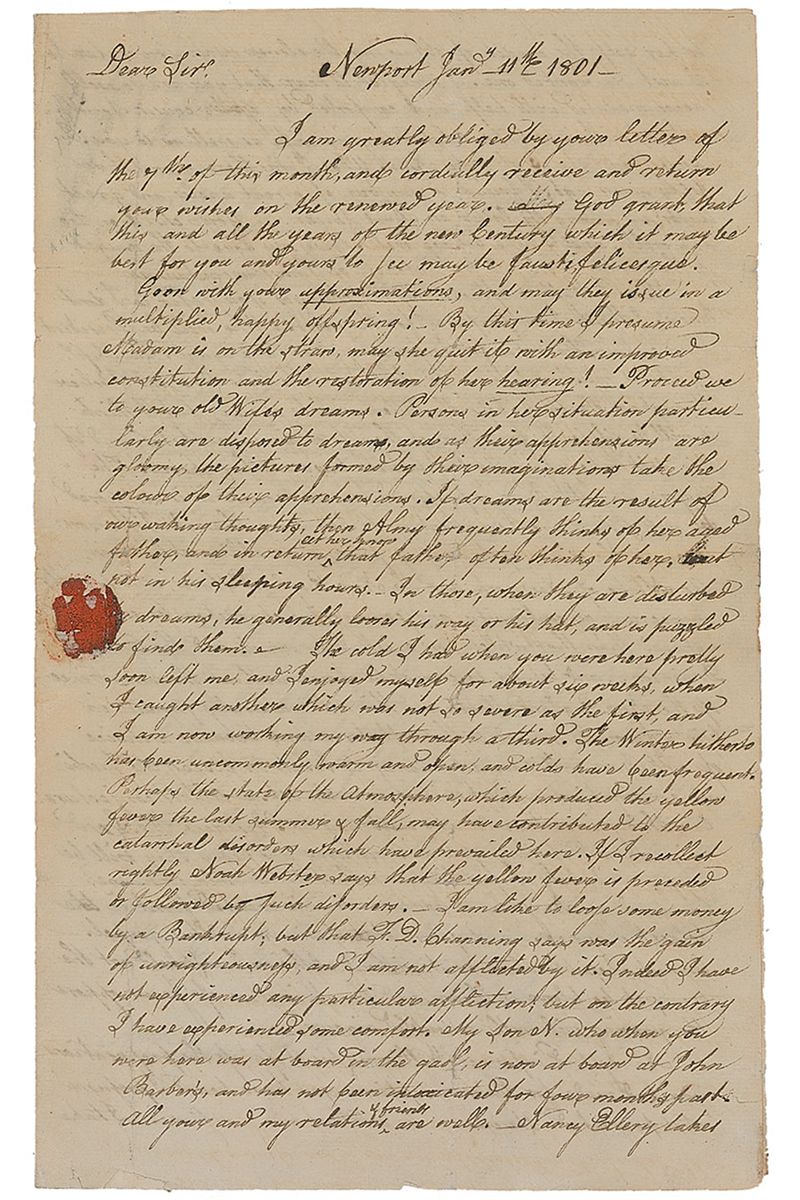 Dear Sir, Newport Jany. 11th. 1801—
I am greatly obliged by your letter of
the 7th. of this month, and cordially receive and return
your wishes on the renewed year. God grant, that
this and all the years of the new Century which it may be
best for you and yours to see may be fausti felicesque.
Goon with your approximations, and may they issue in a
multiplied, happy offspring! — By this time I presume
Madam is on the straw, may she quit it with an improved
constitution and the restoration of her hearing! — Proceed we
to your old Wifes dreams. Persons in her situation particu-
larly are disposed to dreams, and as their apprehensions are
gloomy, the pictures formed by their imaginations take the
colour of their apprehensions. If dreams are the result of
our waking thoughts, then Almy frequently thinks of her aged
father, and in return, let her know that father often thinks of her, but
not in his sleeping hours. — In those, when they are disturbed
by dreams, he generally looses his way or his hat, and is puzzled
to find them. — The cold I had when you were here pretty
soon left me, and I enjoyed myself for about six weeks, when
I caught another which was not so severe as the first, and
I am now working my way through a third. The Winter hitherto
has been uncommonly warm and open, and colds have been frequent.
Perhaps the state of the Atmosphere, which produced the yellow
fever the last summer & fall, may have contributed to the
catarrhal disorders which have prevailed here. If I recollect
rightly Noah Webster says that the yellow fever is preceded
or followed by such disorders. — I am like to loose some money
by a Bankrupt; but that F. D. Channing says was the gain
of unrighteousness, and I am not afflicted by it. Indeed I have
not experienced any particular affliction; but on the contrary
I have experienced some comfort. My Son N. who when you
were here was at board in the gaol, is now at board at John
Barber's, and has not been intoxicated for four months past.
All your and my relations, & friends are well. — Nancy Ellery takes